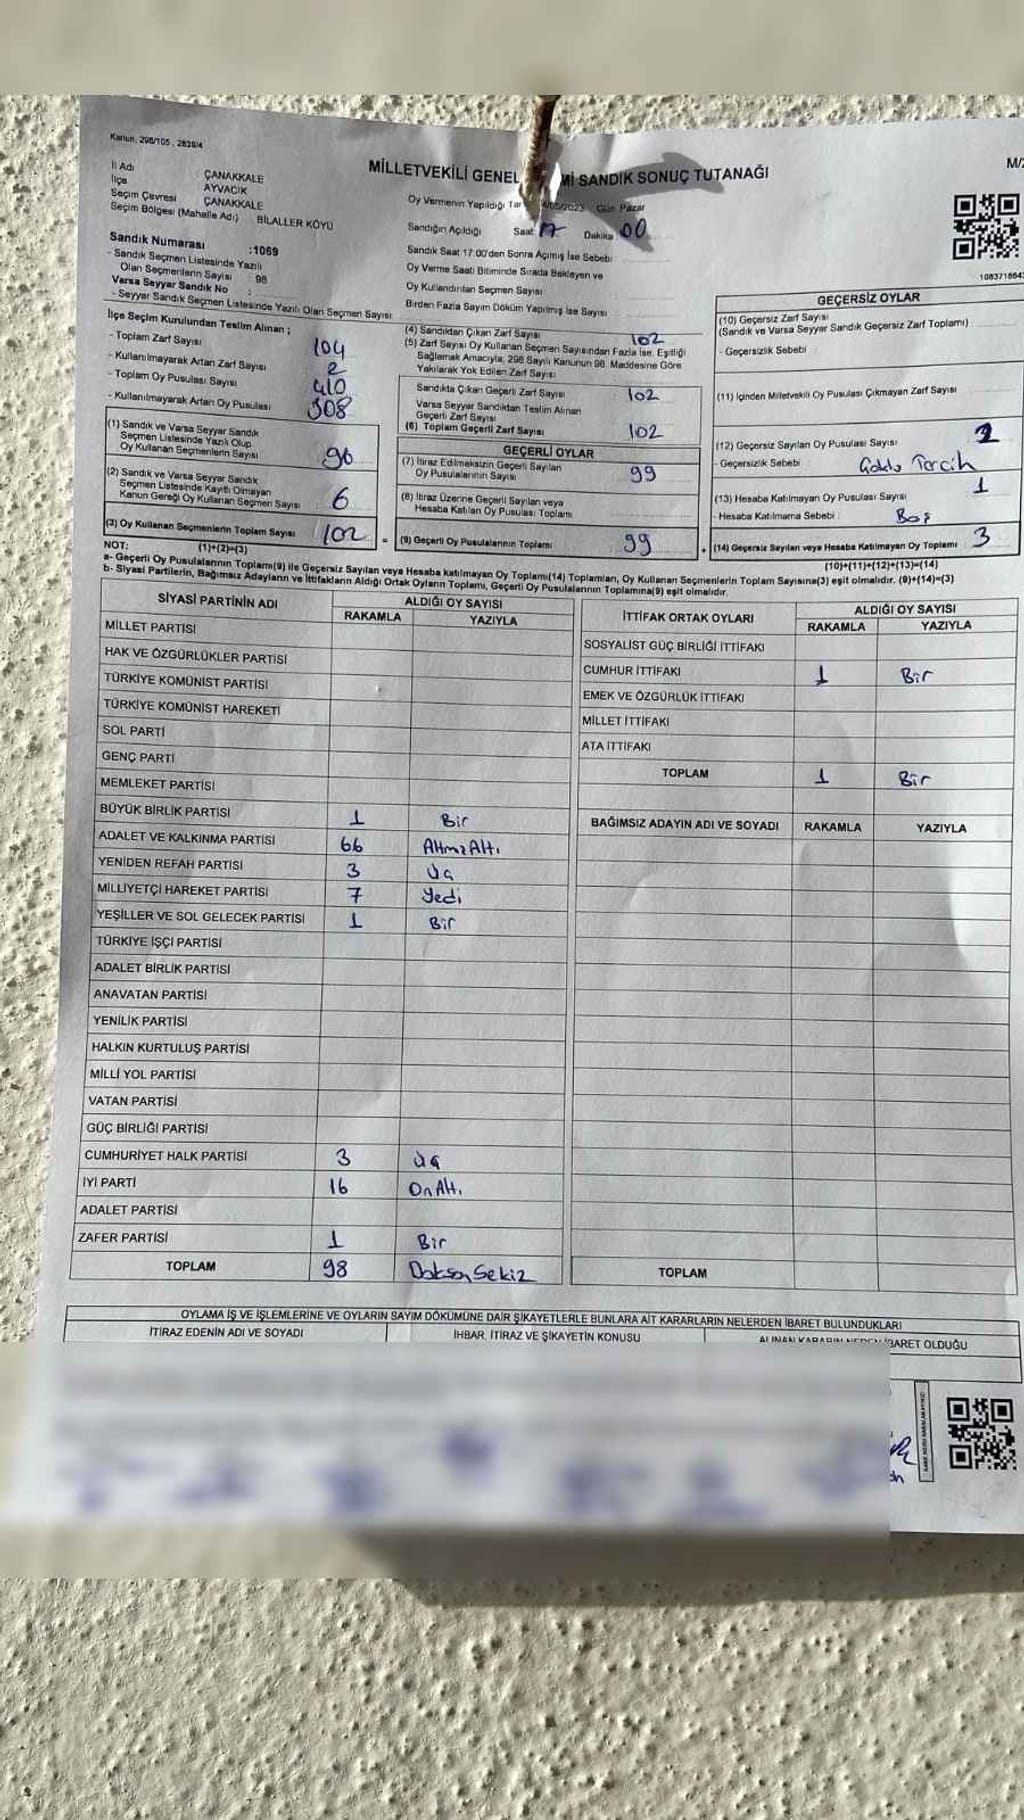 Kanun, 298/105 , 2839/4
MİLLETVEKİLİ GENEL Mİ SANDIK SONUÇ TUTANAĞI
M/2
İl Adı : ÇANAKKALE
İlçe : AYVACIK
Seçim Çevresi : ÇANAKKALE
Seçim Bölgesi (Mahalle Adı) : BİLALLER KÖYÜ
Sandık Numarası :1069
- Sandık Seçmen Listesinde Yazılı
Olan Seçmenlerin Sayısı : 98
Varsa Seyyar Sandık No :
- Seyyar Sandık Seçmen Listesinde Yazılı Olan Seçmen Sayısı
Oy Vermenin Yapıldığı Tar 4/05/2023 Gün Pazar
Sandığın Açıldığı Saat 17 Dakika 00
Sandık Saat 17:00'den Sonra Açılmış İse Sebebi
Oy Verme Saati Bitiminde Sırada Bekleyen ve
Oy Kullandırılan Seçmen Sayısı
Birden Fazla Sayım Döküm Yapılmış İse Sayısı
İlçe Seçim Kurulundan Teslim Alınan ;
- Toplam Zarf Sayısı 104
- Kullanılmayarak Artan Zarf Sayısı 2
- Toplam Oy Pusulası Sayısı 410
- Kullanılmayarak Artan Oy Pusulası 308
(1) Sandık ve Varsa Seyyar Sandık
Seçmen Listesinde Yazılı Olup
Oy Kullanan Seçmenlerin Sayısı 96
(2) Sandık ve Varsa Seyyar Sandık
Seçmen Listesinde Kayıtlı Olmayan
Kanun Gereği Oy Kullanan Seçmen Sayısı 6
(3) Oy Kullanan Seçmenlerin Toplam Sayısı 102
(1)+(2)=(3)
(4) Sandıktan Çıkan Zarf Sayısı 102
(5) Zarf Sayısı Oy Kullanan Seçmen Sayısından Fazla İse, Eşitliği
Sağlamak Amacıyla, 298 Sayılı Kanunun 98. Maddesine Göre
Yakılarak Yok Edilen Zarf Sayısı
Sandıkta Çıkan Geçerli Zarf Sayısı 102
Varsa Seyyar Sandıktan Teslim Alınan
Geçerli Zarf Sayısı
(6) Toplam Geçerli Zarf Sayısı 102
GEÇERLİ OYLAR
(7) İtiraz Edilmeksizin Geçerli Sayılan
Oy Pusulalarının Sayısı 99
(8) İtiraz Üzerine Geçerli Sayılan veya
Hesaba Katılan Oy Pusulası Toplamı
= (9) Geçerli Oy Pusulalarının Toplamı 99 +
GEÇERSİZ OYLAR
(10) Geçersiz Zarf Sayısı
(Sandık ve Varsa Seyyar Sandık Geçersiz Zarf Toplamı)
- Geçersizlik Sebebi
(11) İçinden Milletvekili Oy Pusulası Çıkmayan Zarf Sayısı
(12) Geçersiz Sayılan Oy Pusulası Sayısı 2
- Geçersizlik Sebebi Tercih
(13) Hesaba Katılmayan Oy Pusulası Sayısı 1
- Hesaba Katılmama Sebebi : Boş
(14) Geçersiz Sayılan veya Hesaba Katılmayan Oy Toplamı 3
(10)+(11)+(12)+(13)=(14)
NOT:
a- Geçerli Oy Pusulalarının Toplamı(9) ile Geçersiz Sayılan veya Hesaba katılmayan Oy Toplamı(14) Toplamları, Oy Kullanan Seçmenlerin Toplam Sayısına(3) eşit olmalıdır. (9)+(14)=(3)
b- Siyasi Partilerin, Bağımsız Adayların ve İttifakların Aldığı Ortak Oyların Toplamı, Geçerli Oy Pusulalarının Toplamına(9) eşit olmalıdır.
SİYASİ PARTİNİN ADI ALDIĞI OY SAYISI
RAKAMLA YAZIYLA
MİLLET PARTİSİ
HAK VE ÖZGÜRLÜKLER PARTİSİ
TÜRKİYE KOMÜNİST PARTİSİ
TÜRKİYE KOMÜNİST HAREKETİ
SOL PARTİ
GENÇ PARTİ
MEMLEKET PARTİSİ
BÜYÜK BİRLİK PARTİSİ 1 Bir
ADALET VE KALKINMA PARTİSİ 66 AltmışAltı
YENİDEN REFAH PARTİSİ 3 Üç
MİLLİYETÇİ HAREKET PARTİSİ 7 Yedi
YEŞİLLER VE SOL GELECEK PARTİSİ 1 Bir
TÜRKİYE İŞÇİ PARTİSİ
ADALET BİRLİK PARTİSİ
ANAVATAN PARTİSİ
YENİLİK PARTİSİ
HALKIN KURTULUŞ PARTİSİ
MİLLİ YOL PARTİSİ
VATAN PARTİSİ
GÜÇ BİRLİĞİ PARTİSİ
CUMHURİYET HALK PARTİSİ 3 Üç
İYİ PARTİ 16 OnAltı
ADALET PARTİSİ
ZAFER PARTİSİ 1 Bir
TOPLAM 98 DoksanSekiz
İTTİFAK ORTAK OYLARI ALDIĞI OY SAYISI
RAKAMLA YAZIYLA
SOSYALİST GÜÇ BİRLİĞİ İTTİFAKI
CUMHUR İTTİFAKI 1 Bir
EMEK VE ÖZGÜRLÜK İTTİFAKI
MİLLET İTTİFAKI
ATA İTTİFAKI
TOPLAM 1 Bir
BAĞIMSIZ ADAYIN ADI VE SOYADI RAKAMLA YAZIYLA
TOPLAM
OYLAMA İŞ VE İŞLEMLERİNE VE OYLARIN SAYIM DÖKÜMÜNE DAİR ŞİKAYETLERLE BUNLARA AİT KARARLARIN NELERDEN İBARET BULUNDUKLARI
İTİRAZ EDENİN ADI VE SOYADI İHBAR, İTİRAZ VE ŞİKAYETİN KONUSU ALINAN KARARIN NEDEN İBARET OLDUĞU